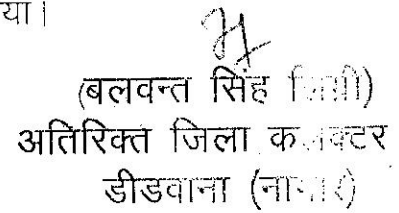 या।
(बलवन्त सिंह
अतिरिक्त जिला कलक्टर
डीडवाना (नागौर)